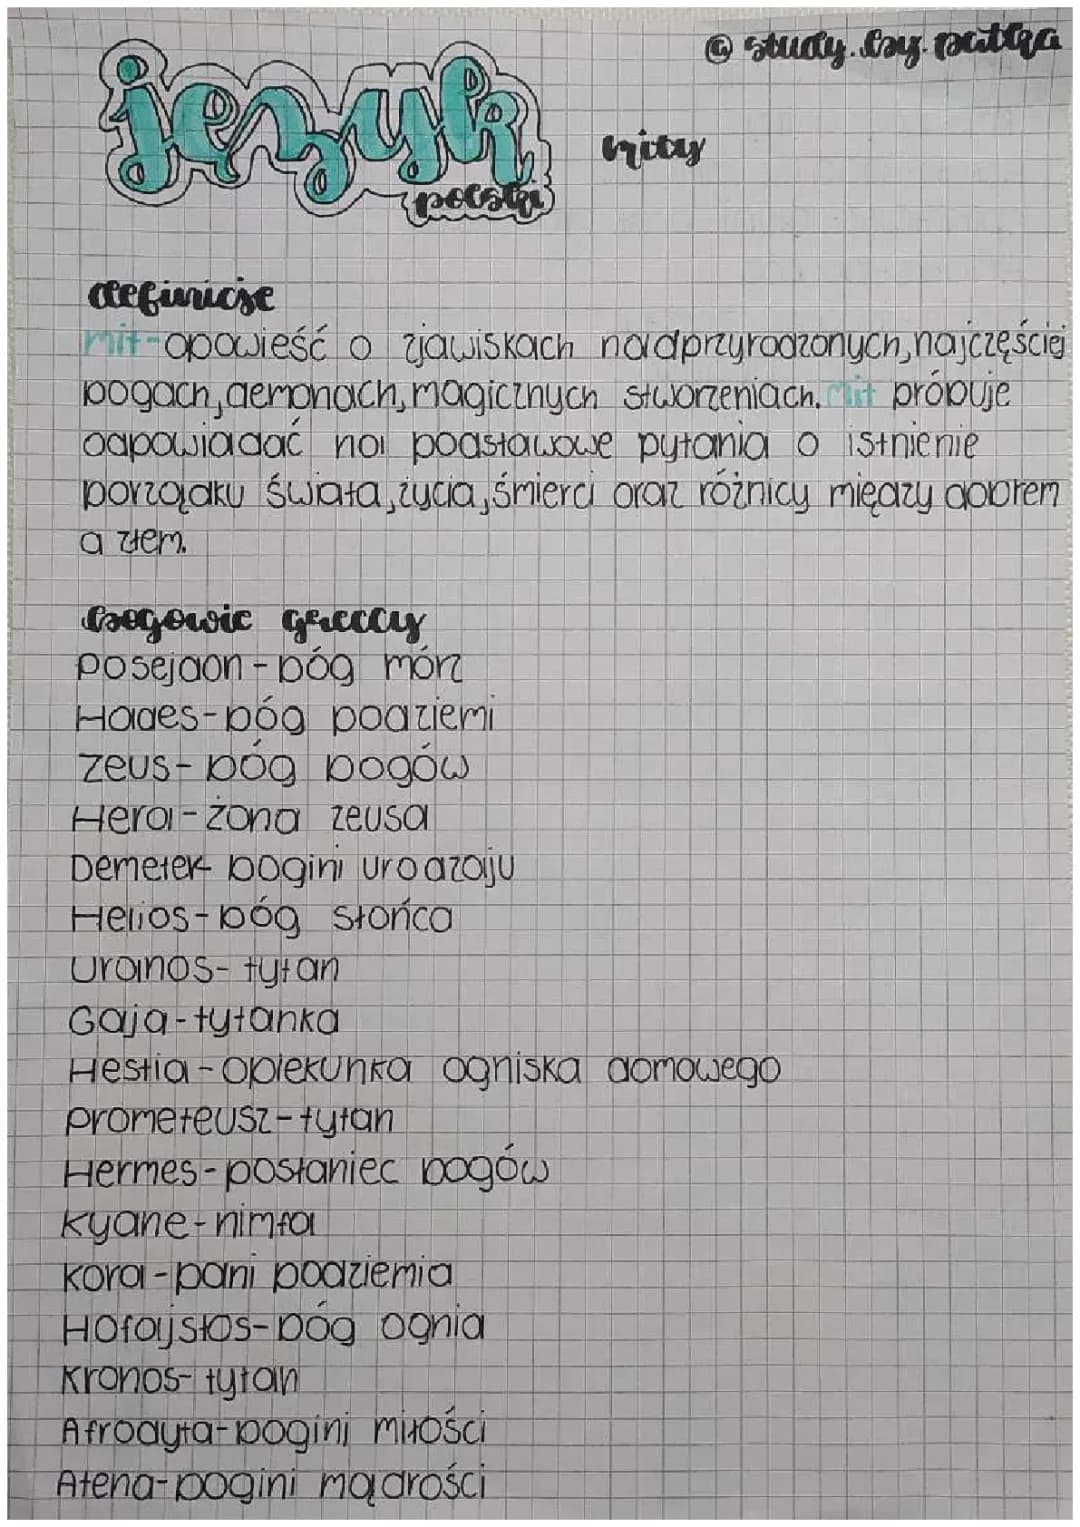 @ study.by.patka
język
polski
mity
definicje
mit-opowieść o zjawiskach nadprzyrodzonych, najczęściej
bogach, demonach, magicznych stworzeniach. Mit próbuje
odpowiadać na podstawowe pytania o istnienie
porządku świata, życia, śmierci oraz różnicy między dobrem
a złem.
bogowie greccy
Posejdon-bóg mórz
Hades-bóg podziemi
Zeus-bóg bogów
Hera-żona zeusa
Demeter-bogini urodzaju
Helios-bóg słońca
Uranos-tytan
Gaja-tytanka
Hestia-opiekunka ogniska domowego
Prometeusz-tytan
Hermes-posłaniec bogów
Kyane-nimfa
Kora-pani podziemia
Hofajstos-bóg ognia
Kronos-tytan
Afrodyta-bogini miłości
Atena-bogini mądrości